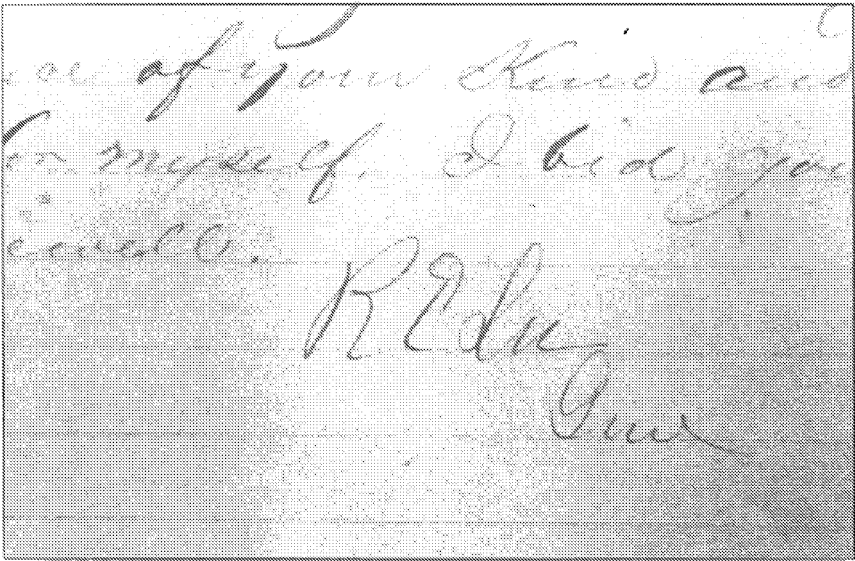 of your Kind and
for myself. I bid you
ewell.
R E Lee
Genl